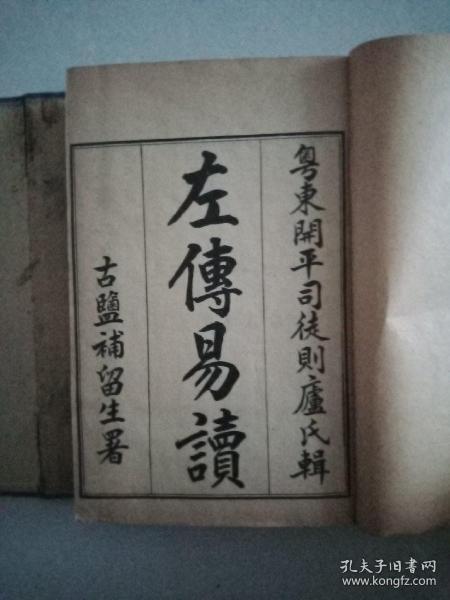 粵東開平司徒則廬氏輯
左傳易讀
古鹽補留生署
孔夫子旧书网
www.kongfz.com